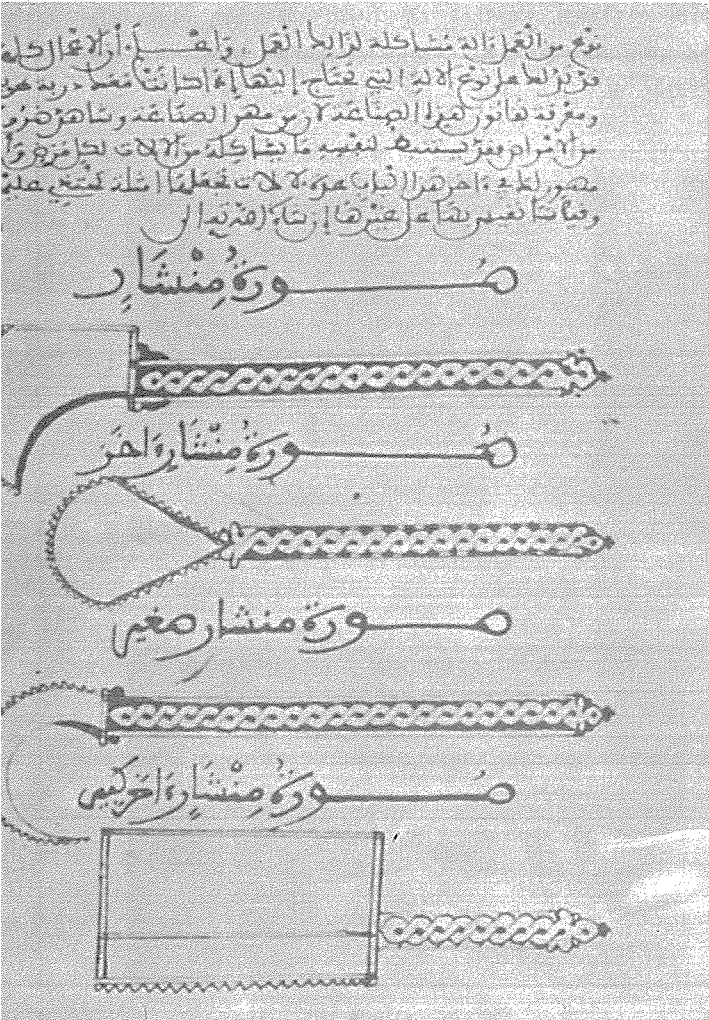 نوع من العمل ءالة مشاكلة لذلك العمل الاعمال كلها
قد يدلك على نوع الالة التي تحتاج إليها إذا كانت معك دربة
ومعرفة قانون هذه الصناعة لان من مهر الصناعة وشاهد ضروب
من الامراض فقد يستنبط لنفسه ما يشاكله من الالات لكل مرض وأ
مصور لك في ءاخر هذا الباب عدة ءالات تجعلها امثلة تحتذي عليها
وقياسا تقيس بها على غيرها إن شاء الله
صُورَةُ مِنْشَارٍ
صُورَةُ مِنْشَارٍ ءَاخَرَ
صورة منشار صغير
صُورَةُ مِنْشَارٍ ءَاخَرَ كبير